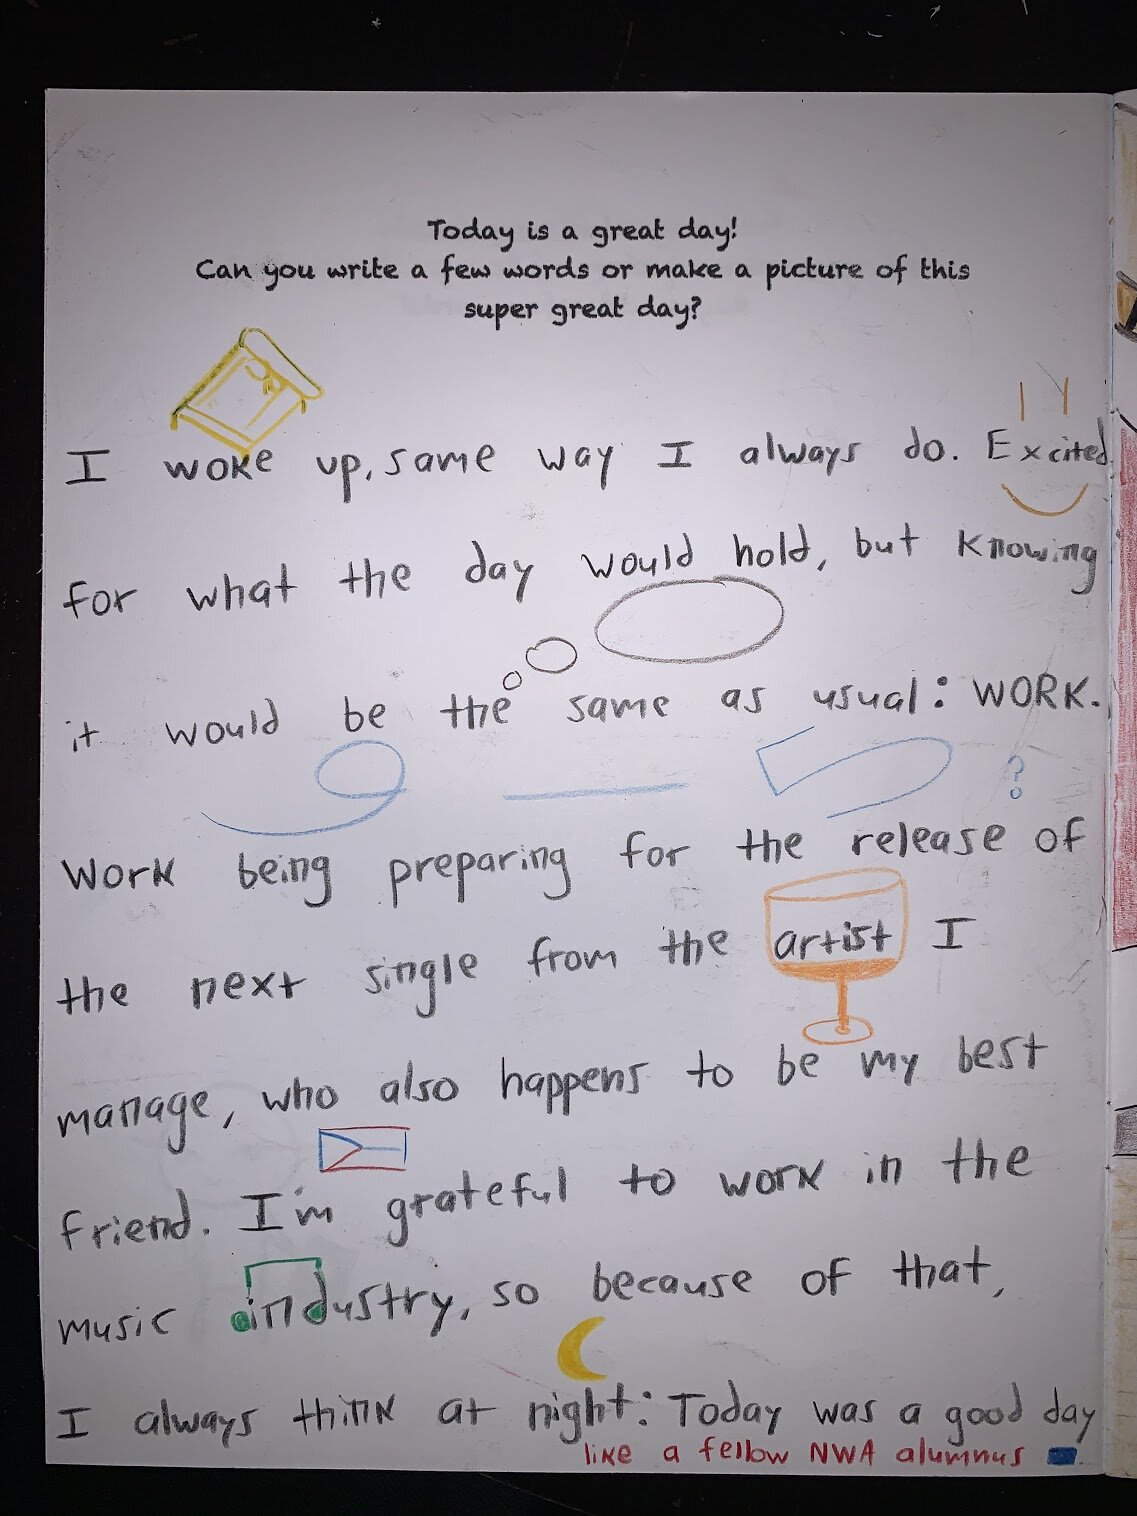 Today is a great day!
Can you write a few words or make a picture of this
super great day?
I woke up, same way I always do. Excited
for what the day would hold, but knowing
it would be the same as usual: WORK.
?
Work being preparing for the release of
the next single from the artist I
manage, who also happens to be my best
friend. I'm grateful to work in the
music industry, so because of that,
I always think at night: Today was a good day
like a fellow NWA alumnus